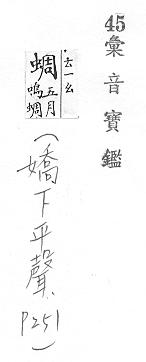 45 彙音寶鑑
ㄊㄧㄠ
蜩 五月鳴蜩
(嬌下平聲、P251)